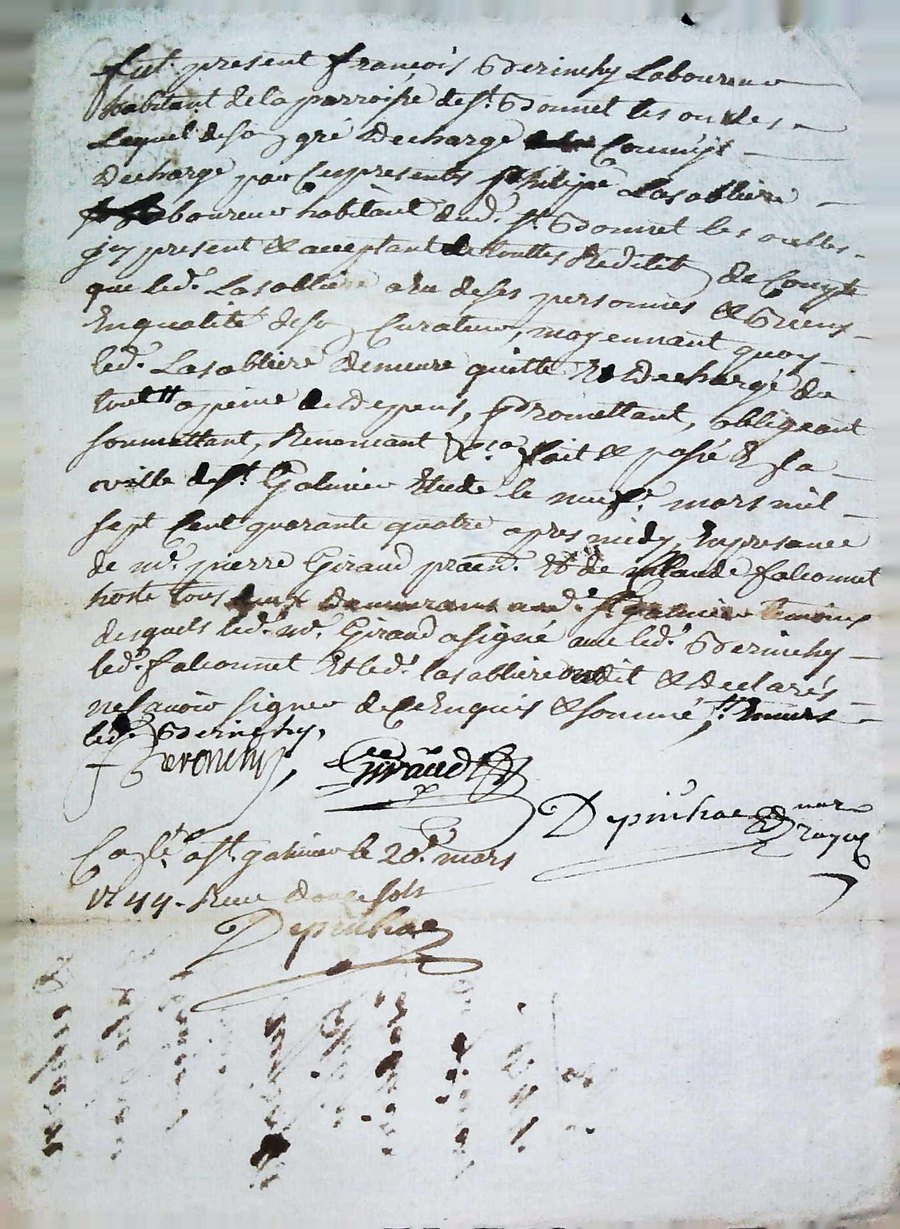 fut present françois Berinchy Laboureur
habitant de la parroisse de st. Bonnet les oulles
Lequel de son gré decharge Comme il
decharge par Ces presents philipe Lasabliere
boureur habitant dud. st. Bonnet les oulles
present & acceptant de touttes Reditets de Compte
que led. Lasabliere a eu de ses personnes & Biens
En qualité de son Curateur, moyennant quoy
led. Lasabliere demeure quitte Et decharge du
tout a peine de depens, promettant, obligeant
soumettant, Renoncant & fait & passé En la
ville de st. Galmier Etude le neufe. mars mil
sept Cent quarante quatre apres midy, En presance
de me. pierre Giraud praen. Et de Claude falconnet
hoste tous deux demeurans aud. st. galmier temoins
desquels led. me. Giraud a signé avec led. Berinchy
led. falconnet Et led. lasabliere ont dit & declarés
ne scavoir signer de Ce Enquis & sommé
led. Berinchy,
Beronchy, Giraud
Depinhac nore
royal
a st. galmier le 20e. mars
1744 - Receu douze sols
Depinhac